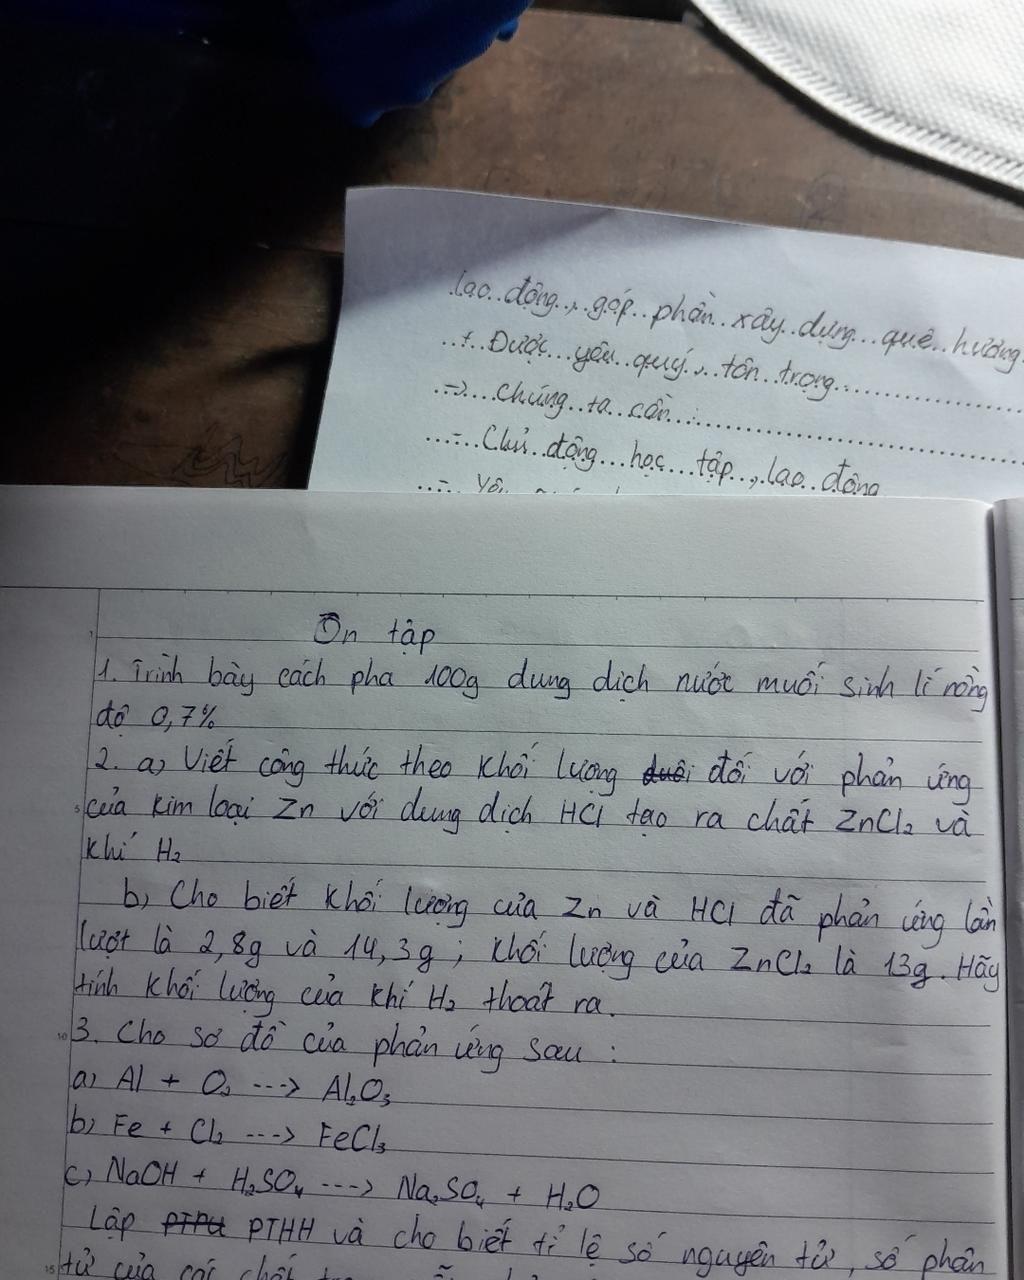 lao động, góp phần xây dựng quê hương
+ Được yêu quý, tôn trọng
=> Chúng ta cần :
- Chủ động học tập, lao động
- Yêu
Ôn tập
1. Trình bày cách pha 100g dung dịch nước muối sinh lí nồng
độ 0,7%
2. a) Viết công thức theo khối lượng đối với phản ứng
của kim loại Zn với dung dịch HCl tạo ra chất ZnCl₂ và
khí H₂
b) Cho biết khối lượng của Zn và HCl đã phản ứng lần
lượt là 2,8g và 14,3g ; khối lượng của ZnCl₂ là 13g. Hãy
tính khối lượng của khí H₂ thoát ra.
3. Cho sơ đồ của phản ứng sau :
a) Al + O₂ ---> Al₂O₃
b) Fe + Cl₂ ---> FeCl₃
c) NaOH + H₂SO₄ ---> Na₂SO₄ + H₂O
Lập PTHH và cho biết tỉ lệ số nguyên tử, số phân
tử của các chất